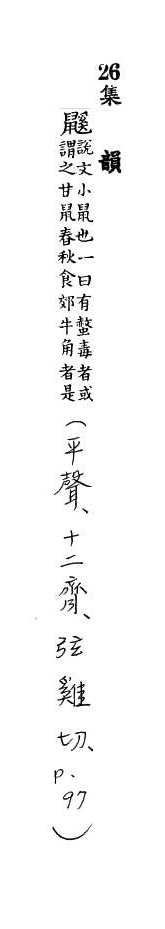 26 集韻
鼷 說文小鼠也一曰有螫毒者或
謂之甘鼠春秋食郊牛角者是
(平聲、十二齊、弦雞切、p.97)